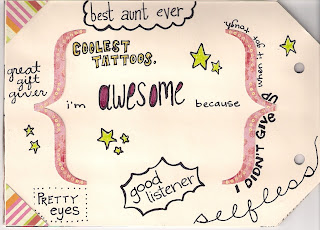 best aunt ever
COOLEST
TATTOOS.
great
gift
giver
i'm awesome because
I DIDN'T GIVE
when it got tough.
good
listener
PRETTY
eyes
selfless